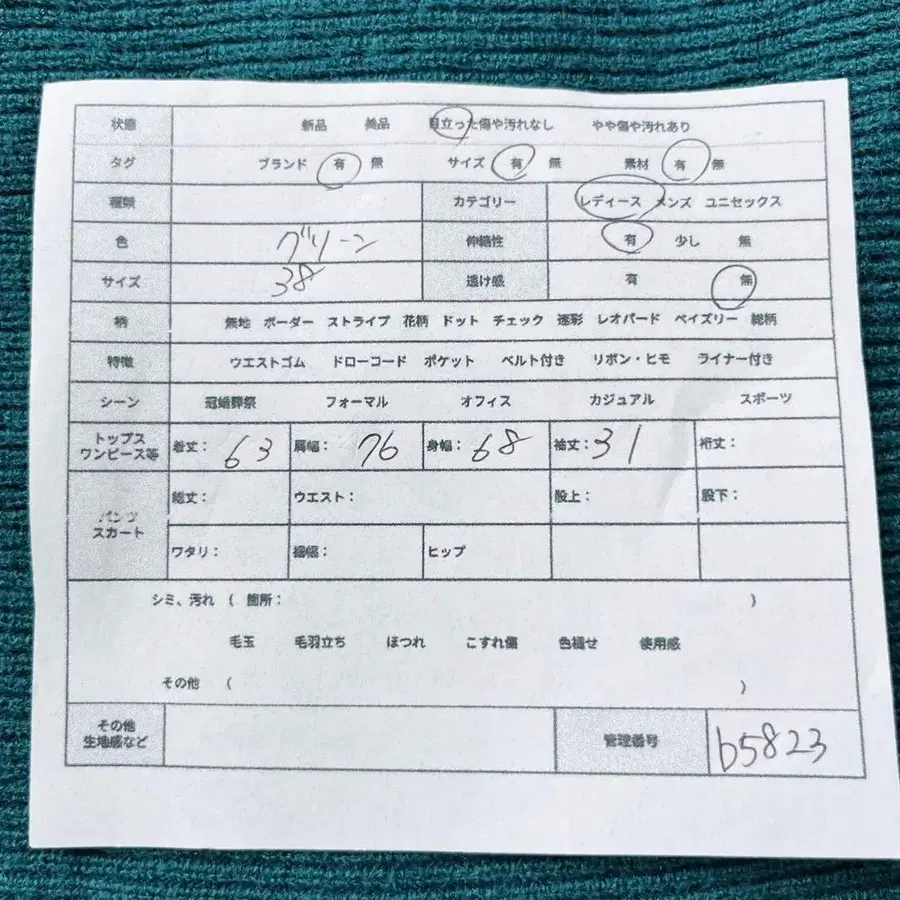 状態 新品 美品 目立った傷や汚れなし やや傷や汚れあり
タグ ブランド 有 無 サイズ 有 無 素材 有 無
種類 カテゴリー レディース メンズ ユニセックス
色 グリーン 伸縮性 有 少し 無
サイズ 38 透け感 有 無
柄 無地 ボーダー ストライプ 花柄 ドット チェック 迷彩 レオパード ペイズリー 総柄
特徴 ウエストゴム ドローコード ポケット ベルト付き リボン・ヒモ ライナー付き
シーン 冠婚葬祭 フォーマル オフィス カジュアル スポーツ
トップス
ワンピース等 着丈: 63 肩幅: 76 身幅: 68 袖丈: 31 裄丈:
パンツ
スカート 総丈: ウエスト: 股上: 股下:
ワタリ: 裾幅: ヒップ
シミ、汚れ ( 箇所: )
毛玉 毛羽立ち ほつれ こすれ傷 色褪せ 使用感
その他 ( )
その他
生地感など 管理番号 b5823